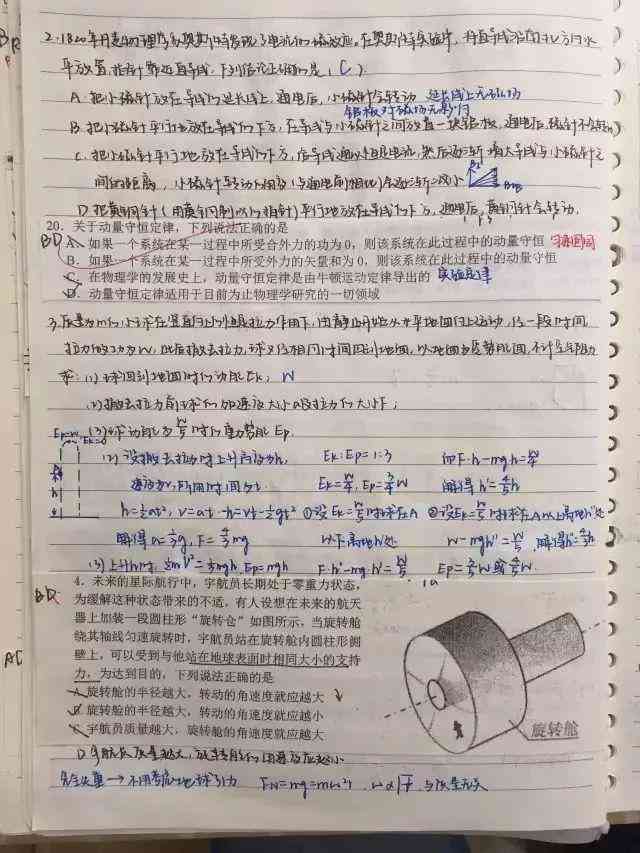 2. 1820年丹麦物理学家奥斯特发现了电流的磁效应。在奥斯特实验中，将直导线沿南北方向水
平放置，指针靠近直导线，下列结论正确的是（C）.
A. 把小磁针放在导线的延长线上，通电后，小磁针会转动 延长线上无磁场
铝板对磁场无影响
B. 把小磁针平行地放在导线的下方，在导线与小磁针之间放置一块铝板，通电后，磁针不会转动
C. 把小磁针平行地放在导线的下方，给导线通以恒定电流，然后逐渐增大导线与小磁针之
间的距离，小磁针转动的角度（与通电前相比）会逐渐减小
D. 把黄铜针（用黄铜制成的指针）平行地放在导线的下方，通电后，黄铜针会转动.
20. 关于动量守恒定律，下列说法正确的是
BD A. 如果一个系统在某一过程中所受合外力的功为 0，则该系统在此过程中的动量守恒
B. 如果一个系统在某一过程中所受外力的矢量和为 0，则该系统在此过程中的动量守恒
C. 在物理学的发展史上，动量守恒定律是由牛顿运动定律导出的 实验定律
D. 动量守恒定律适用于目前为止物理学研究的一切领域
3. 质量为m的小球在竖直向上的恒定拉力作用下，由静止开始从水平地面向上运动，经一段时间，
拉力做功为W，此后撤去拉力，球又经相同时间回到地面，以地面为零势能面，不计空气阻力
求：(1)球回到地面时的动能Ek； W
(2)撤去拉力前球的加速度大小a及拉力的大小F；
(3)球动能为W/5时的重力势能Ep.
(2)设撤去拉力时上升高度为h, Ek:Ep=1:3 即F·h-mgh=W/4
速度为v,所用时间为t. Ek=W/4, Ep=3/4W
h=½at², v=at -h=vt-½gt² ①设Ek=W/5时球在A ②设Ek=W/5时球在A以上离地h'处
解得a=⅓g, F=4/3mg 以下离地h'处 W-mgh'=W/5 解得h'=
(3)上升h时, ½mv²=⅓mgh, Ep=mgh F·h'-mgh'=W/5 Ep=3/5W或4/5W
4. 未来的星际航行中，宇航员长期处于零重力状态，
BD 为缓解这种状态带来的不适，有人设想在未来的航天
器上加装一段圆柱形“旋转舱”如图所示，当旋转舱
绕其轴线匀速旋转时，宇航员站在旋转舱内圆柱形侧
壁上，可以受到与他站在地球表面时相同大小的支持
力，为达到目的，下列说法正确的是
A. 旋转舱的半径越大，转动的角速度就应越大
B. 旋转舱的半径越大，转动的角速度就应越小
C. 宇航员质量越大，旋转舱的角速度就应越大
旋转舱
D. 宇航员质量越大，旋转舱的角速度就应越小
完全失重→不用考虑地球引力 FN=mg=mω²r 与质量无关